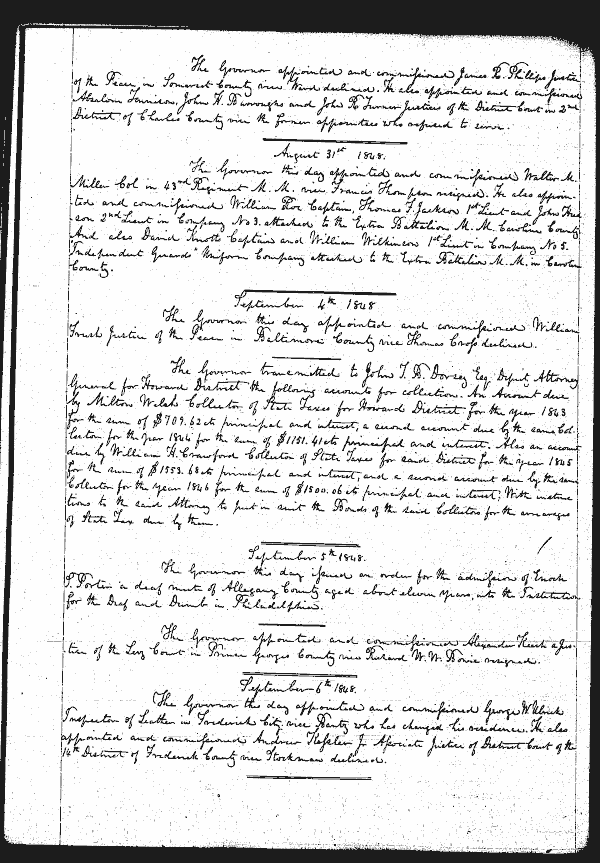 The Governor appointed and commissioned James R. Phillips Justice
of the Peace, in Somerset County vice Ward declined. He also appointed and commissioned
Absalom Tennison, John H. Burroughs and John R. Turner Justices of the District Court in 2nd
District of Charles County vice the former appointees who refused to serve.
August 31st 1848.
The Governor this day appointed and commissioned Walter M.
Miller Col in 43rd Regiment M. M. vice Francis Thompson resigned. He also appoin-
ted and commissioned William Roe Captain, Thomas F. Jackson 1st Lieut and John Hud-
son 2nd Lieut in Company No 3. attached to the Extra Battalion M. M. Caroline County
And also David Knotts Captain and William Wilkinson 1st Lieut in Company No 5.
Independent Guards' Uniform Company attached to the Extra Battalion M. M. in Caroline
County.
September 4th 1848
The Governor this day appointed and commissioned William
Trust Justice of the Peace in Baltimore County vice Thomas Cross declined.
The Governor transmitted to John T. B. Dorsey Esq. Deputy Attorney
General for Howard District the following accounts for collection. An Account due
by Milton Welsh Collector of State Taxes for Howard District for the year 1843
for the sum of $709.62cts principal and interest, a second account due by the same Col-
lector for the year 1844 for the sum of $1181.41cts principal and interest. Also an account
due by William H. Crawford Collector of State Taxes for said District for the year 1845
for the sum of $1553.68cts principal and interest; and a second account due by the same
Collector for the year 1846 for the sum of $1500.06cts principal and interest; With instruc-
tions to the said Attorney to put in suit the Bonds of the said Collectors for the arrearages
of State Tax due by them.
September 5th 1848.
The Governor this day issued an order for the admission of Enoch
P. Porter a deaf mute of Allegany County aged about eleven years, into the Institution
for the Deaf and Dumb in Philadelphia.
The Governor appointed and commissioned Alexander Keech a Jus-
tice of the Levy Court in Prince Georges County vice Richard W. W. Bowie resigned.
September 6th 1848.
The Governor this day appointed and commissioned George W. Ulrich
Inspector of Leather in Frederick City, vice Bantz who has changed his residence. He also
appointed and commissioned Andrew Kessler Jr Associate Justice of District Court of the
14th District of Frederick County vice Stockman declined.